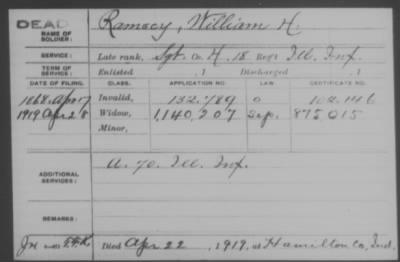 DEAD
NAME OF SOLDIER: Ramsey, William H.
SERVICE: Late rank, Sgt. Co. H, 18 Reg't Ill. Inf.
TERM OF SERVICE: Enlisted , 1 Discharged , 1
DATE OF FILING. CLASS. APPLICATION NO. LAW CERTIFICATE NO.
1868 Apr 17 Invalid, 132,789 o 102,146
1919 Apr 28 Widow, 1,140,207 Sep. 875015
Minor,
ADDITIONAL SERVICES: A. 70. Ill. Inf.
REMARKS:
Died Apr 22, 1919, at Hamilton Co, Ind.